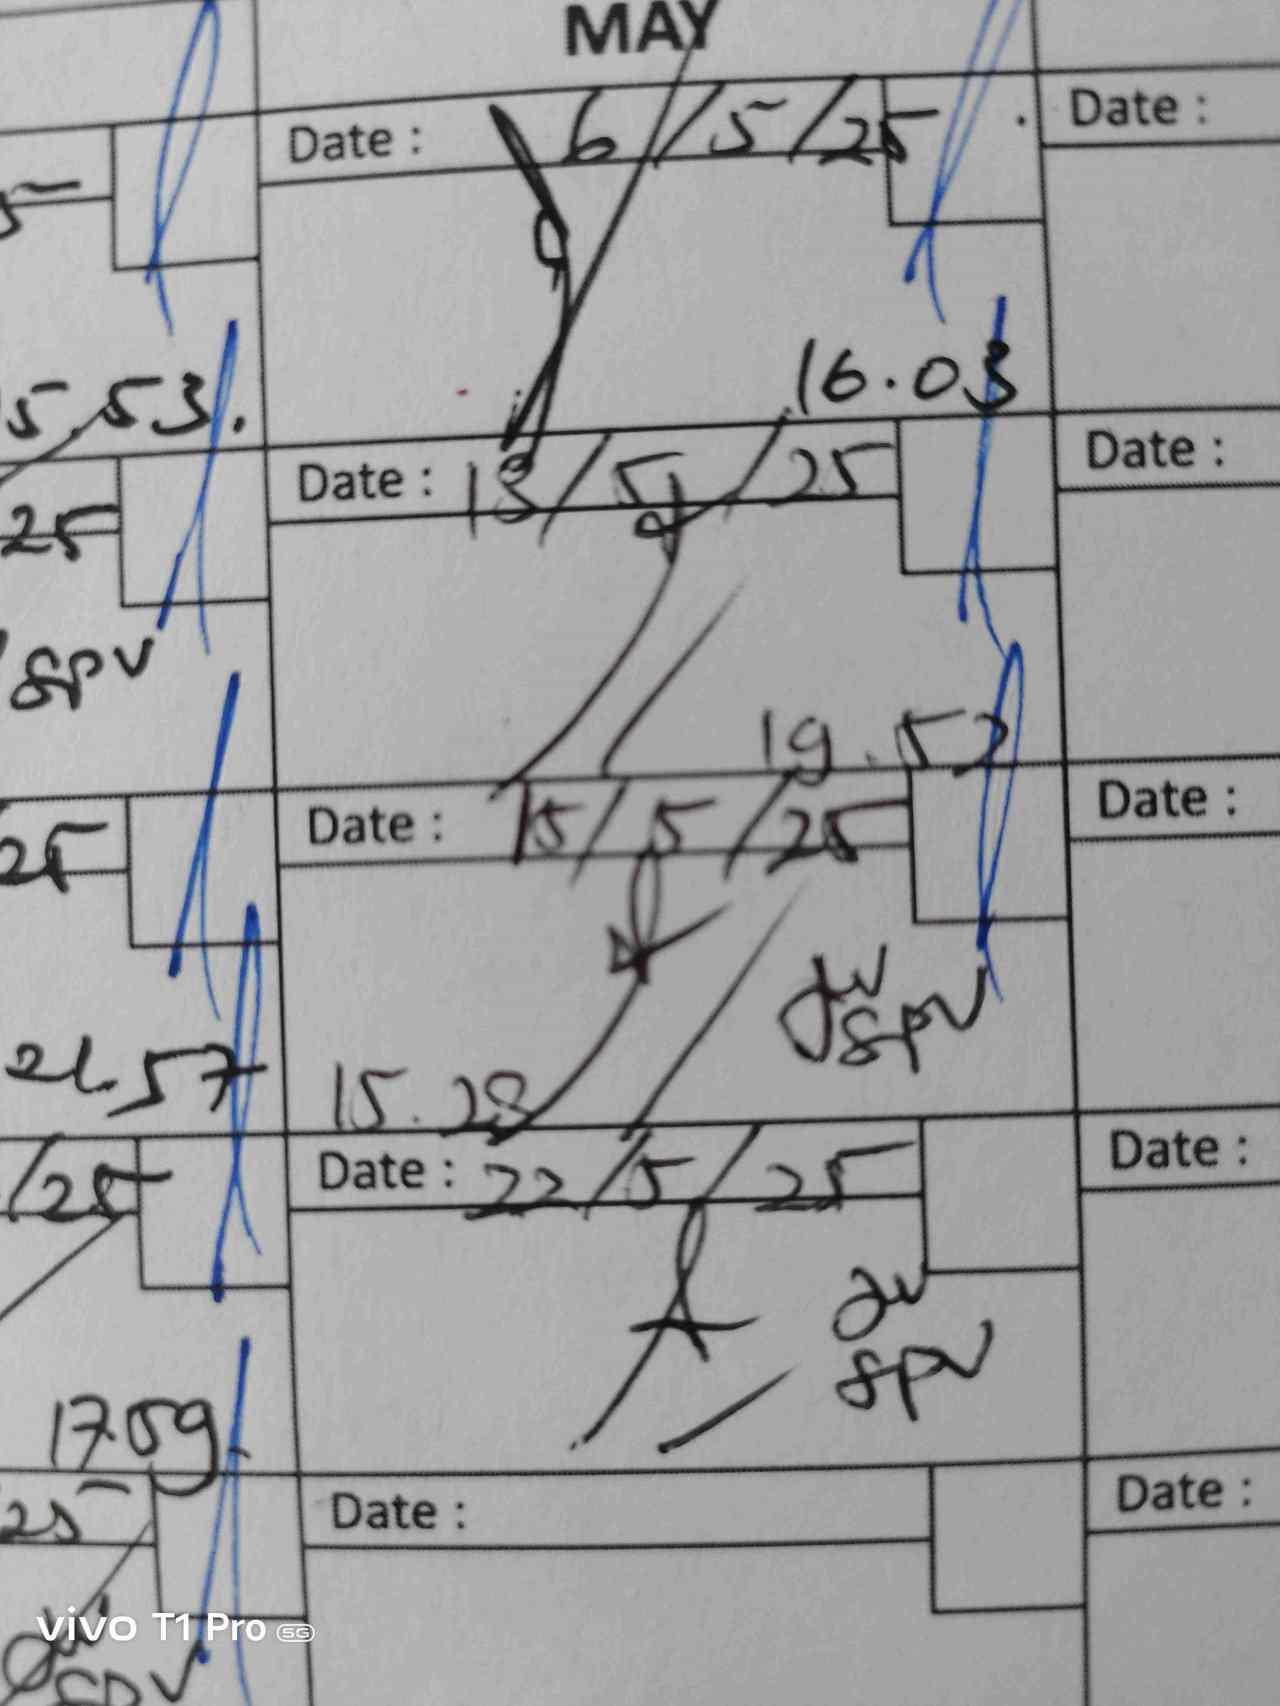 MAY
Date : 6/5/25
Date :
16.03
5.53.
Date : 13/5/25
Date :
25
spv
19.57
Date : 15/5/25
Date :
25
spv
21.57
15.28
Date : 22/5/25
Date :
/25
spv
17.09
Date :
Date :
25
spv
vivo T1 Pro 5G